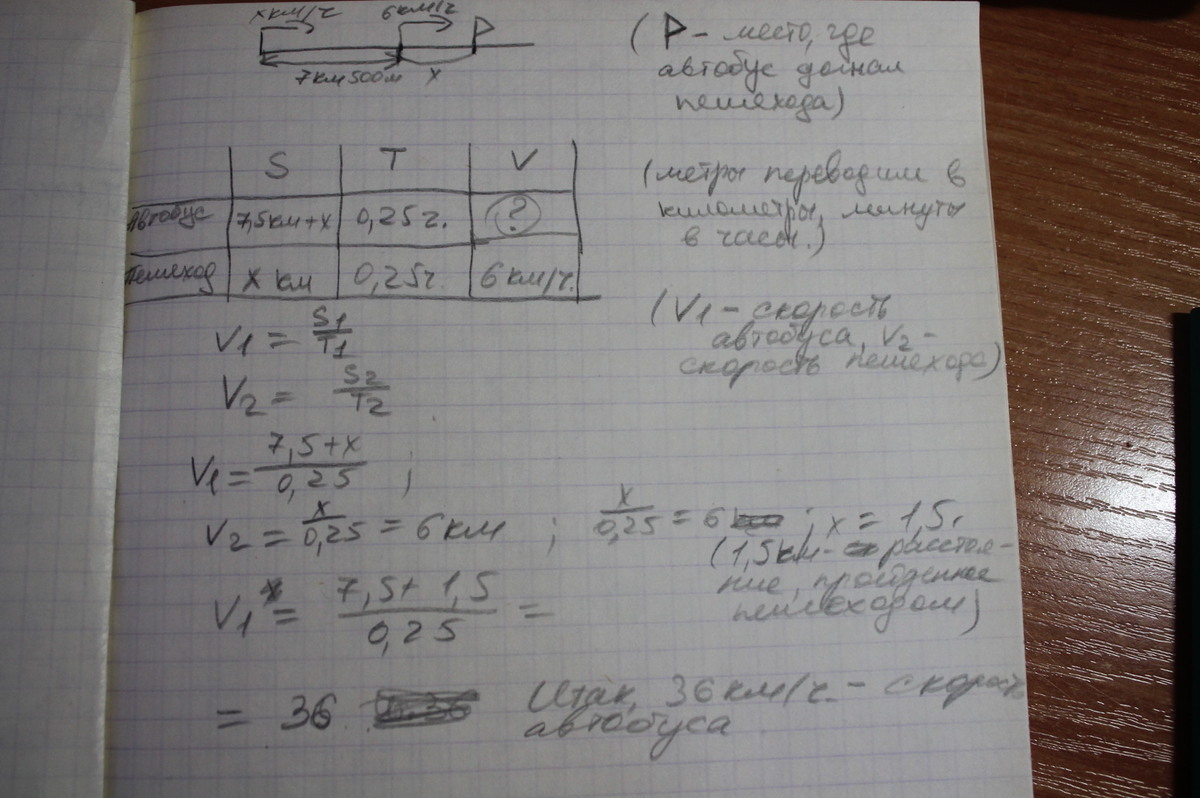 x км/ч 6 км/ч P
7 км 500 м x
(P - место, где
автобус догнал
пешехода)
S T V
Автобус 7,5 км + x 0,25 ч. ?
Пешеход x км 0,25 ч. 6 км/ч.
(метры переводим в
километры, минуты
в часы.)
V1 = S1/T1
V2 = S2/T2
(V1 - скорость
автобуса, V2 -
скорость пешехода)
V1 = 7,5+x/0,25 ;
V2 = x/0,25 = 6 км ; x/0,25 = 6 ; x = 1,5.
(1,5 км - расстоя-
ние, пройденное
пешеходом)
V1 = 7,5+1,5/0,25 =
= 36 Итак, 36 км/ч. - скорость
автобуса